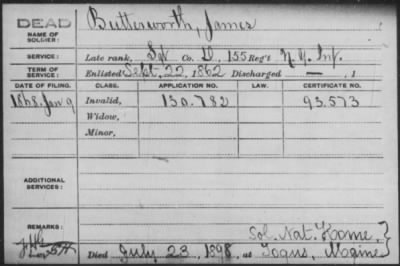 DEAD
NAME OF SOLDIER:
Butterworth, James
SERVICE:
Late rank, Sgt Co. D, 155 Reg't N.Y. Inf.
TERM OF SERVICE:
Enlisted Sept. 22, 1862 Discharged —, 1
DATE OF FILING. CLASS. APPLICATION NO. LAW. CERTIFICATE NO.
1868. Jan 9 Invalid, 130.782 93.573
Widow,
Minor,
ADDITIONAL SERVICES:
REMARKS:
Sol. Nat. Home.
Died July 23, 1898, at Togus, Maine